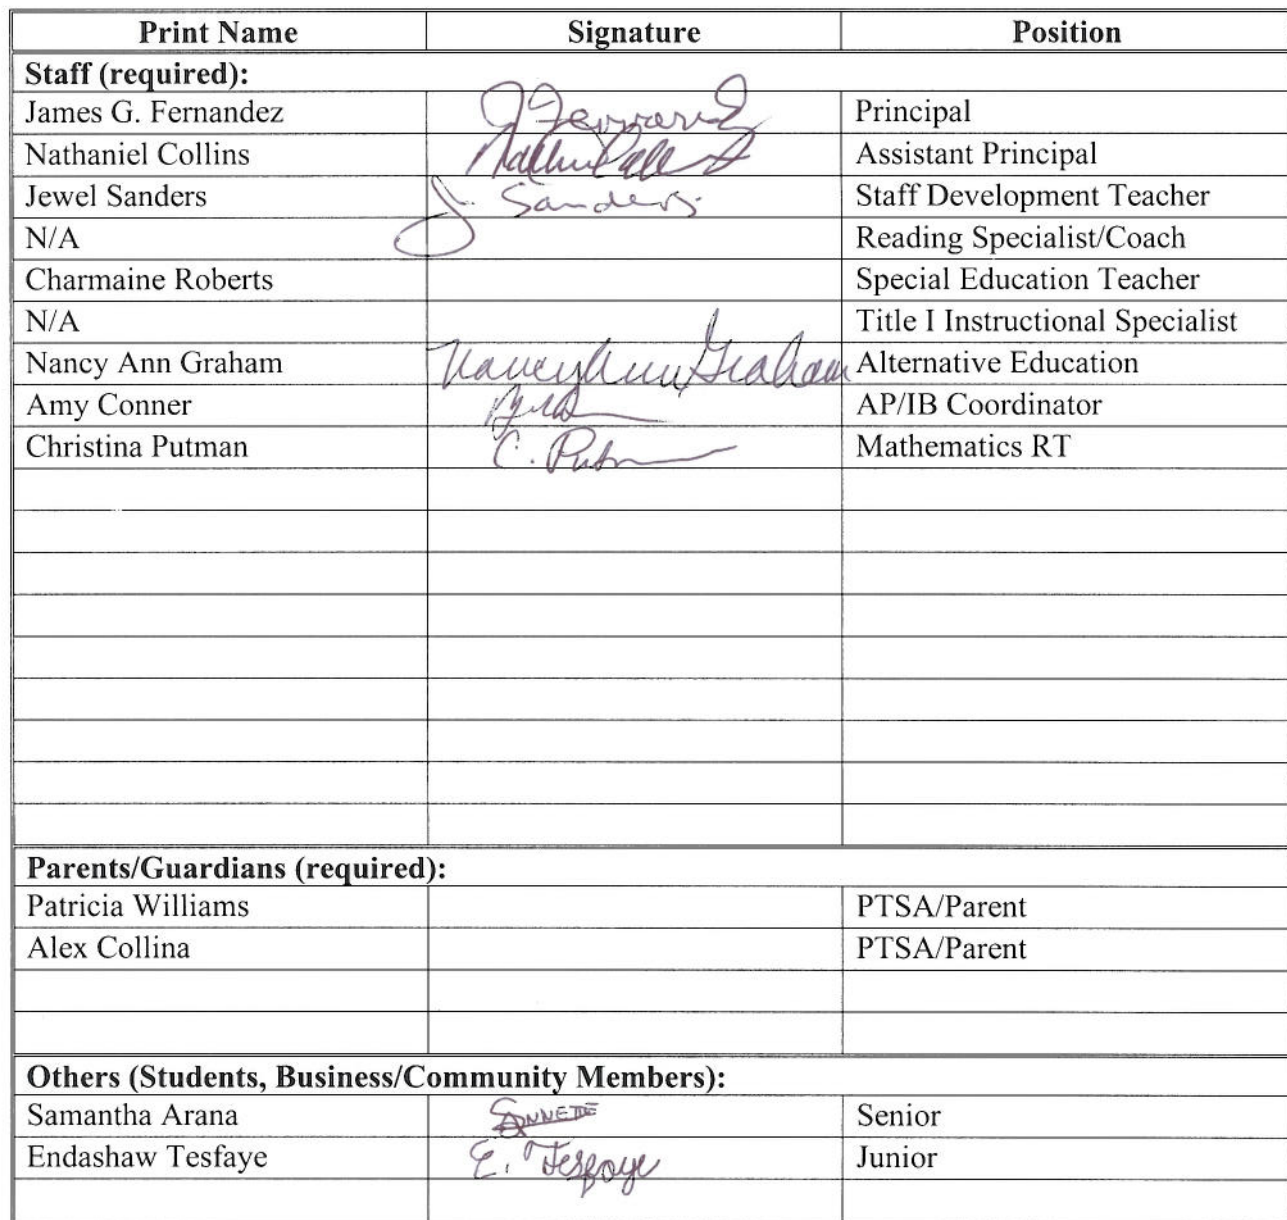 Print Name Signature Position
Staff (required):
James G. Fernandez J Fernandez Principal
Nathaniel Collins Assistant Principal
Jewel Sanders J. Sanders Staff Development Teacher
N/A Reading Specialist/Coach
Charmaine Roberts Special Education Teacher
N/A Title I Instructional Specialist
Nancy Ann Graham Nancy Ann Graham Alternative Education
Amy Conner AP/IB Coordinator
Christina Putman C. Putman Mathematics RT
Parents/Guardians (required):
Patricia Williams PTSA/Parent
Alex Collina PTSA/Parent
Others (Students, Business/Community Members):
Samantha Arana Senior
Endashaw Tesfaye E. Tesfaye Junior